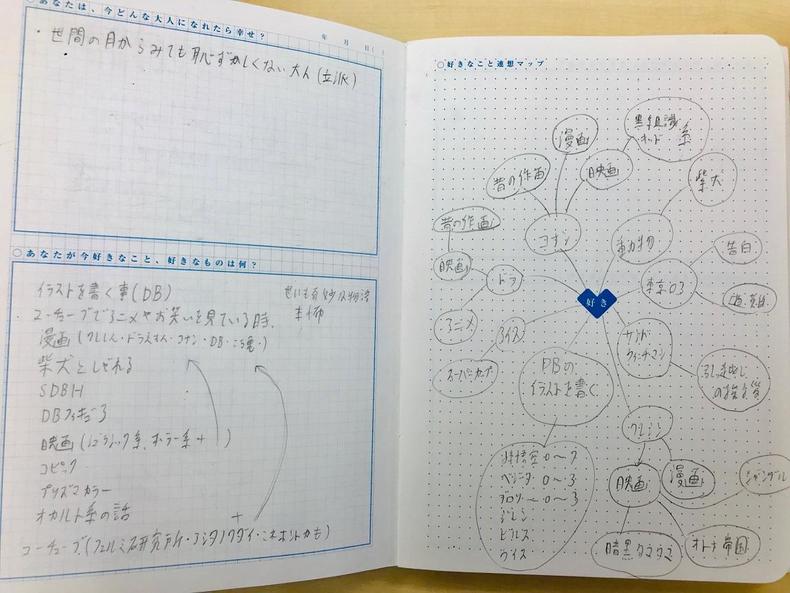 ○あなたは、今どんな大人になれたら幸せ?
年 月 日( )
・世間の目からみても恥ずかしくない大人(立派)
○あなたが今好きなこと、好きなものは何?
イラストを書く事(DB)
ユーチューブでアニメやお笑いを見ている時、
漫画(クレしん・ドラえもん・コナン・DB・こち亀・)
柴犬としゃれる
SDBH
DBフィギュア
映画( 系、ホラー系 + )
コピック
プリズマカラー
オカルト系の話
ユーチューブ(フェルミ研究所・ ・ )
せにも奇妙な物語
○好きなこと連想マップ
漫画
黒組織
系
昔の作画
映画
柴犬
昔の作画
コナン
動物
告白
映画
ドラ
好き
東京03
アニメ
アイス
サンド
ウィッチマン
スーパーカップ
DBの
イラストを書く
引っ越し
の挨拶
クレシン
孫悟空0〜7
ベジータ0〜3
ブロリー0〜3
ジレン
ビルス
ウイス
映画
漫画
ジャングル
暗黒タマタマ
オトナ帝国